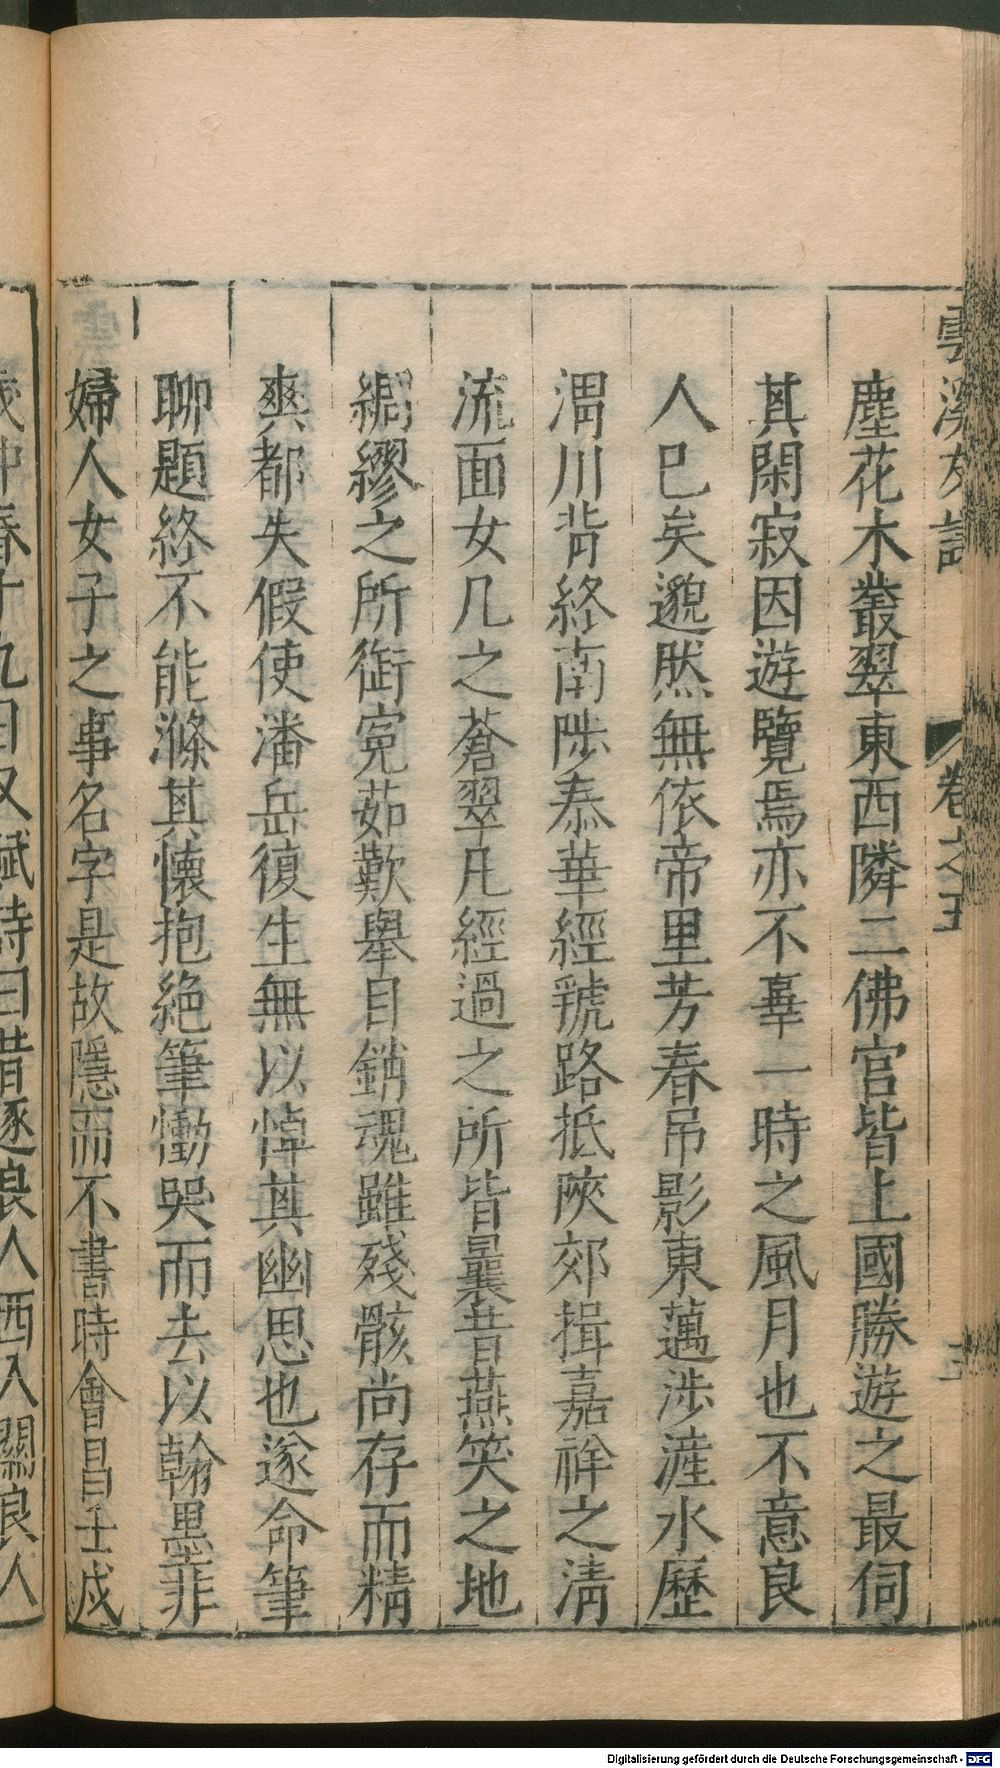 雲溪友議
卷之五
塵花木叢翠東西隣二佛宫皆上國勝遊之最伺
其閑寂因遊覽焉亦不辜一時之風月也不意良
人已矣邈然無依帝里芳春吊影東邁涉滻水歷
渭川背終南陟泰華經虢路抵陝郊揖嘉祥之清
流面女几之蒼翠凡經過之所皆曩昔燕笑之地
綢繆之所銜寃茹歎舉目銷魂雖殘骸尚存而精
爽都失假使潘岳復生無以悼其幽思也遂命筆
聊題終不能滌其懷抱絶筆慟哭而去以翰墨非
婦人女子之事名字是故隱而不書時會昌壬戌
歲仲春十九日又賦詩曰昔逐良人西入關良人
Digitalisierung gefördert durch die Deutsche Forschungsgemeinschaft - DFG